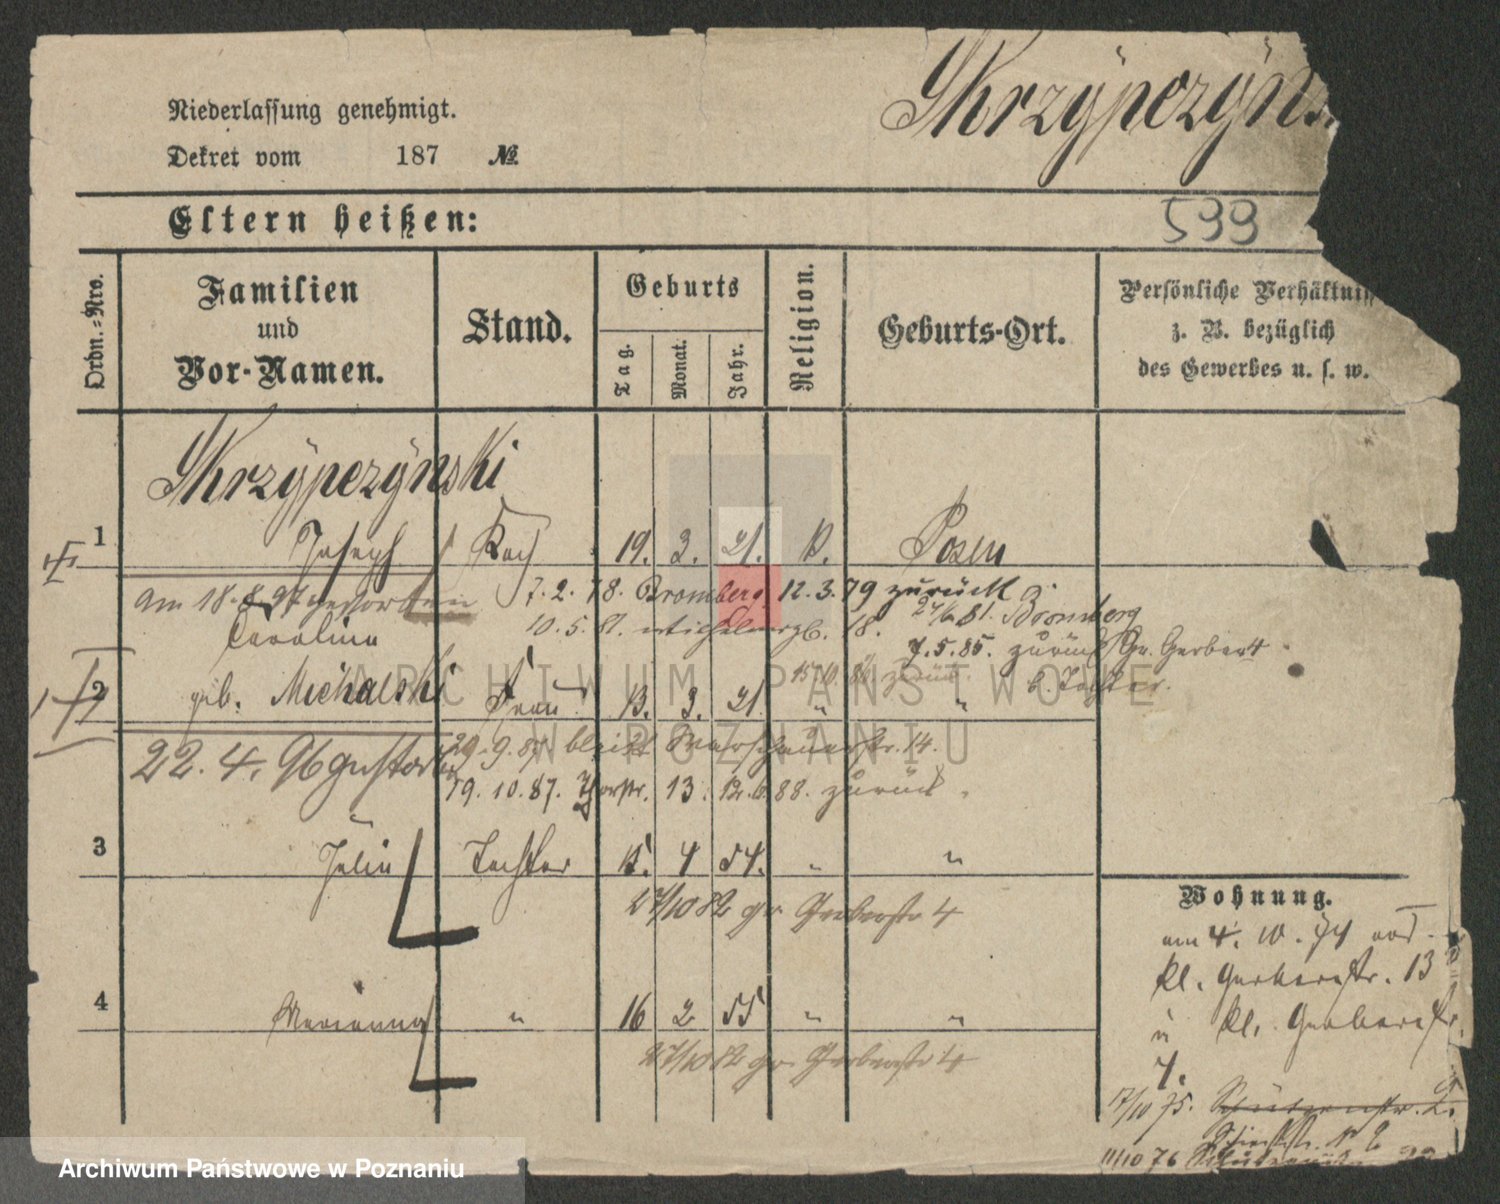 Niederlassung genehmigt.
Dekret vom 187 №
Skrzÿpczÿns
Eltern heißen:
599
Ordn.-Nro.
Familien
und
Vor-Namen.
Stand.
Geburts
Tag.
Monat.
Jahr.
Religion.
Geburts-Ort.
Persönliche Verhältniss
z. B. bezüglich
des Gewerbes u. s. w.
Skrzÿpczÿnski
1 Joseph Koch 19. 3. 21. k. Posen
am 18. 8. 97 verstorben
7. 2. 78. Bromberg 12. 3. 79 zurück
10. 5. 81. 18. 24/6 81. Bromberg
Carolina
7. 5. 85. zurück Gr. Gerberst
2 geb. Michalski Frau 13. 3. 21. " "
15.10.86 zurück
b. Tochter.
22. 4. 96 gestorben
29. 9. 87 bleibt Warschauerstr. 14.
19. 10. 87. Thorstr. 13. 12. 6. 88. zurück.
3 Julie Tochter 15. 4 54. " "
27/10 82 gr. Gerberstr 4
4 Marianna " 16 2 55 " "
27/10 82 gr. Gerberstr 4
Wohnung.
am 4. 10. 74
kl. Gerberstr. 13
u kl. Gerberstr.
7.
17/10 75. Schützenstr. 2.
11/10 76 Schützenstr.
ARCHIWUM PAŃSTWOWE
W POZNANIU
Archiwum Państwowe w Poznaniu